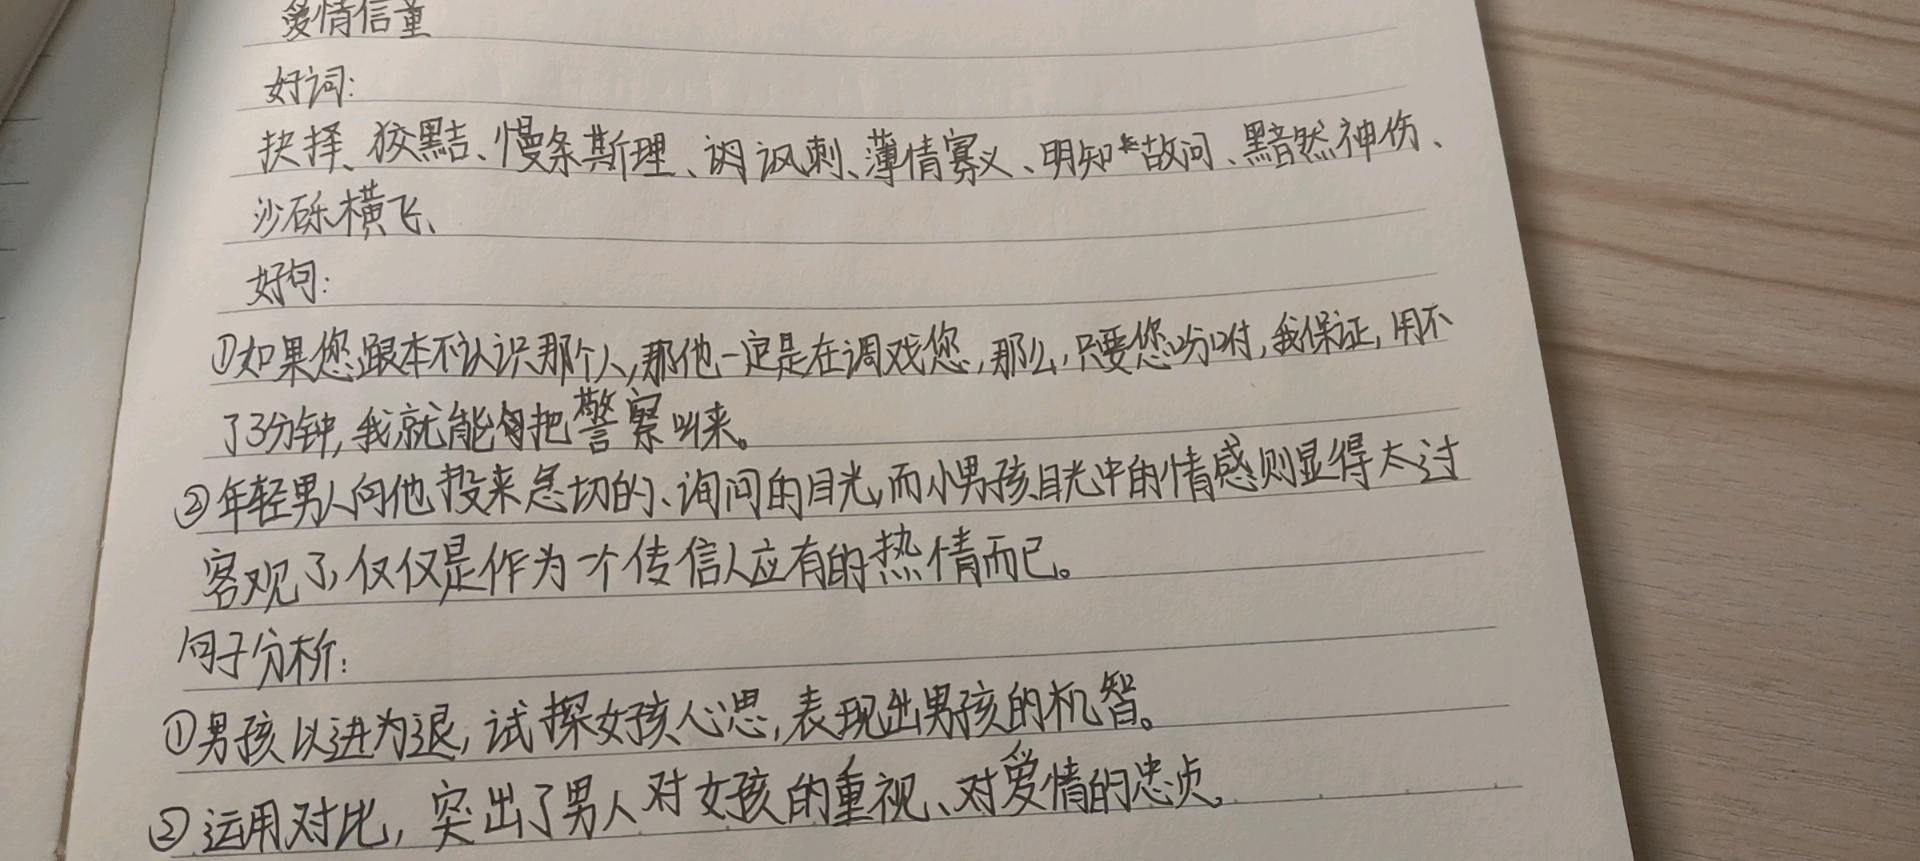 爱情信童
好词:
抉择、狡黠、慢条斯理、讽刺、薄情寡义、明知故问、黯然神伤、
沙砾横飞、
好句:
①如果您跟本不认识那个人,那他一定是在调戏您,那么,只要您吩咐,我保证,用不
了3分钟,我就能把警察叫来。
②年轻男人向他投来急切的、询问的目光,而小男孩目光中的情感则显得太过
客观了,仅仅是作为一个传信人应有的热情而已。
句子分析:
①男孩以进为退,试探女孩心思,表现出男孩的机智。
②运用对比,突出了男人对女孩的重视、对爱情的忠贞。